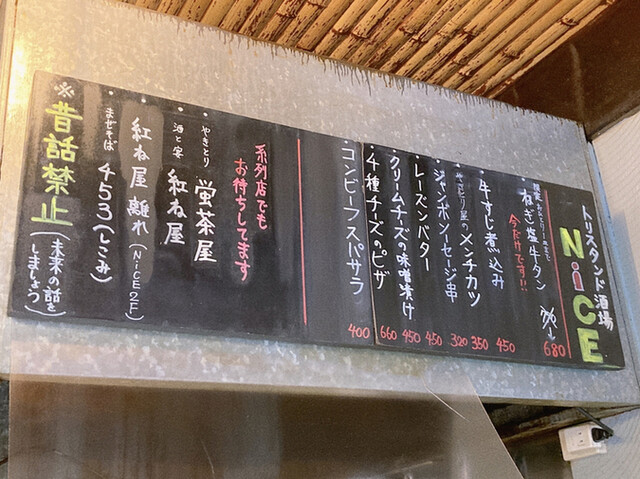 トリスタンド酒場
NiCE
ねぎ塩牛タン
今だけです!!
680
牛すじ煮込み
450
やきとり屋のメンチカツ
350
ジャンボソーセージ串
320
レーズンバター
450
クリームチーズの味噌漬け
450
4種チーズのピザ
660
・コンビーフスパサラ
400
系列店でも
お待ちしてます
・やきとり 蛍茶屋
・酒と宴 紅ね屋
・紅ね屋 離れ(NiCE 2F)
・まぜそば 453(しこみ)
※昔話禁止(未来の話をしましょう)